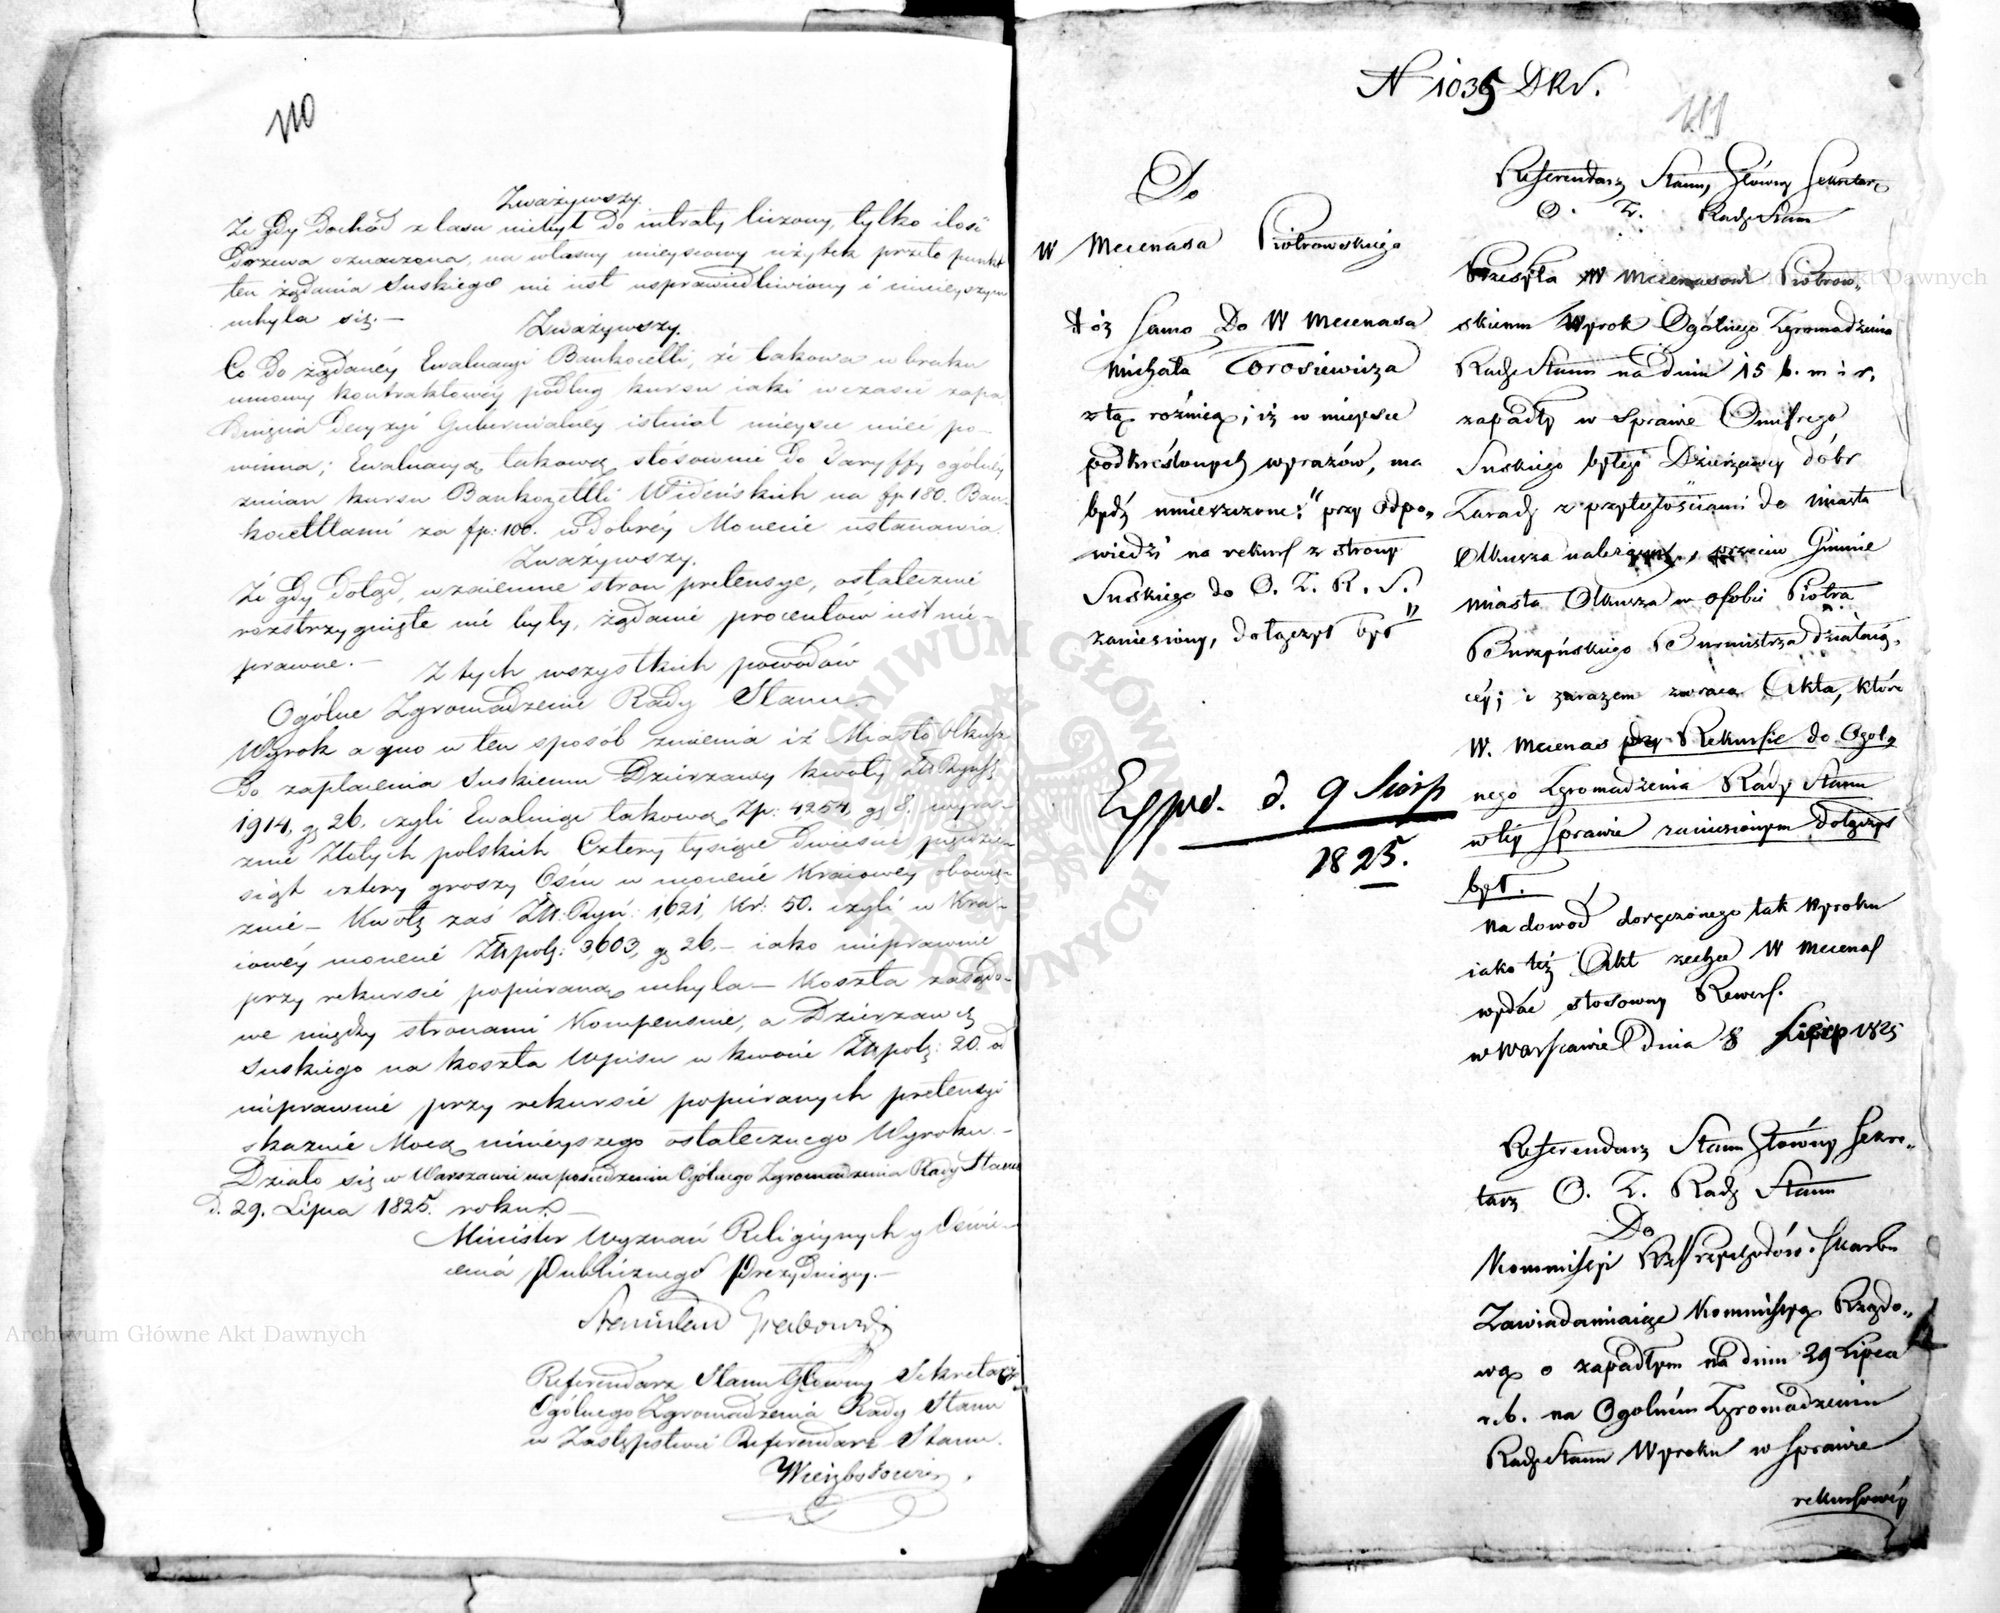 110
Zważywszy.
Że gdy dochód z lasu niebył do intraty liczony, tylko ilość
drzewa oznaczona, na własny mieyscowy użytek przeto punkt
ten żądania Suskiego nie iest usprawiedliwiony i ninieyszym
uchyla się. —
Zważywszy.
Co do żądanéy Ewaluacyi Bankocetli, że takowa w braku
umowy kontraktowéy podług kursu iaki w czasie zapa
dnięcia decyzyi Gubernialnéy istniał mieysce mieć po-
winna; Ewaluacyą takową stósownie do Taryffy ogólnéy
zmian kursu Bankozettli Wideńskich na fp 180. Ban-
kocetlami za fp. 100. w dobréy Monecie ustanawia.
Zważywszy.
Że gdy dotąd, wzaiemne stron pretensye, ostatecznie
rozstrzygnięte nie były, żądanie procentów iest nie-
prawne. — Z tych wszystkich powodów
Ogólne Zgromadzenie Rady Stanu.
Wyrok a quo w ten sposób zmienia iż Miasto Olkusz
do zapłacenia Suskiemu Dzierżawcy kwoty Zł Ryńs
1914, g 26. czyli Ewalucyi takową Zp: 4254, g 8. wyra-
źnie Złotych polskich Cztery tysiące dwieście pięćdzie-
siąt cztery groszy Ośm w monecie Kraiowéy obowią-
zuie — Kwotę zaś Zł: Ryń: 1,621, Kr: 50. czyli w Kra-
iowéy monecie Złpolς: 3,603, g 26. — iako nieprawnie
przy rekursie popieraną uchyla — Koszta zasądo-
we między stronami Kompensuie, a Dzierżawcę
Suskiego na koszta Wpisu w kwocie Złpol: 20. od
nieprawnie przy rekursie popieranych pretensyi
skazuie Mocą ninieyszego ostatecznego Wyroku. —
Działo się w Warszawie na posiedzeniu Ogólnego Zgromadzenia Rady Stanu
d. 29. Lipca 1825. roku. —
Minister Wyznań Religiynych y Oświe-
cenia Publicznego Prezyduiący. —
Stanisław Grabowski
Referendarz Stanu Główny Sekretarz
Ogólnego Zgromadzenia Rady Stanu
w Zastępstwie Referendarz Stanu.
N 1035 DKS.
111
Do
W Mecenasa Piotrowskiego
tóż samo do W Mecenasa
Michała Torosiewicza
z tą różnicą; iż w mieysce
podkreślonych wyrazów, ma
bydź umieszczone: "przy odpo„
wiedzi na rekurs z strony
Suskiego do O. Z. R. S.
zaniesiony, dołączył był"
Exped. d. 9 Sierp
1825.
Referendarz Stanu, Główny Sekretarz
O. Z. Rady Stanu
Przesyła W Mecenasowi Piotrow„
skiemu Wyrok Ogólnego Zgromadzenia
Rady Stanu na dniu 15 b. m i r.
zapadły w sprawie Onufrego
Suskiego byłego Dzierżawcy dóbr
z przyległościami do miasta
Olkusza należących, przeciw Gminie
miasta Olkusza w osobie Piotra
Burzyńskiego Burmistrza działaią„
céy; i zarazem zwraca Akta, które
W. Mecenas przy Rekursie do Ogól„
nego Zgromadzenia Rady Stanu
w téy sprawie zaniesionym dołączył
był.
Na dowód doręczonego tak Wyroku
iako też Akt zechce W Mecenas
wydać stosowny Rewers.
w Warszawie dnia 8 Sierp 1825
Referendarz Stanu Główny Sekre„
tarz O. Z. Rady Stanu
Do
Kommissyi Rzs Przychodów i Skarbu
Zawiadamiaiąc Kommissyą Rządo„
wą o zapadłym na dniu 29 Lipca
r. b. na Ogolném Zgromadzeniu
Rady Stanu Wyroku w sprawie
rekursowéy